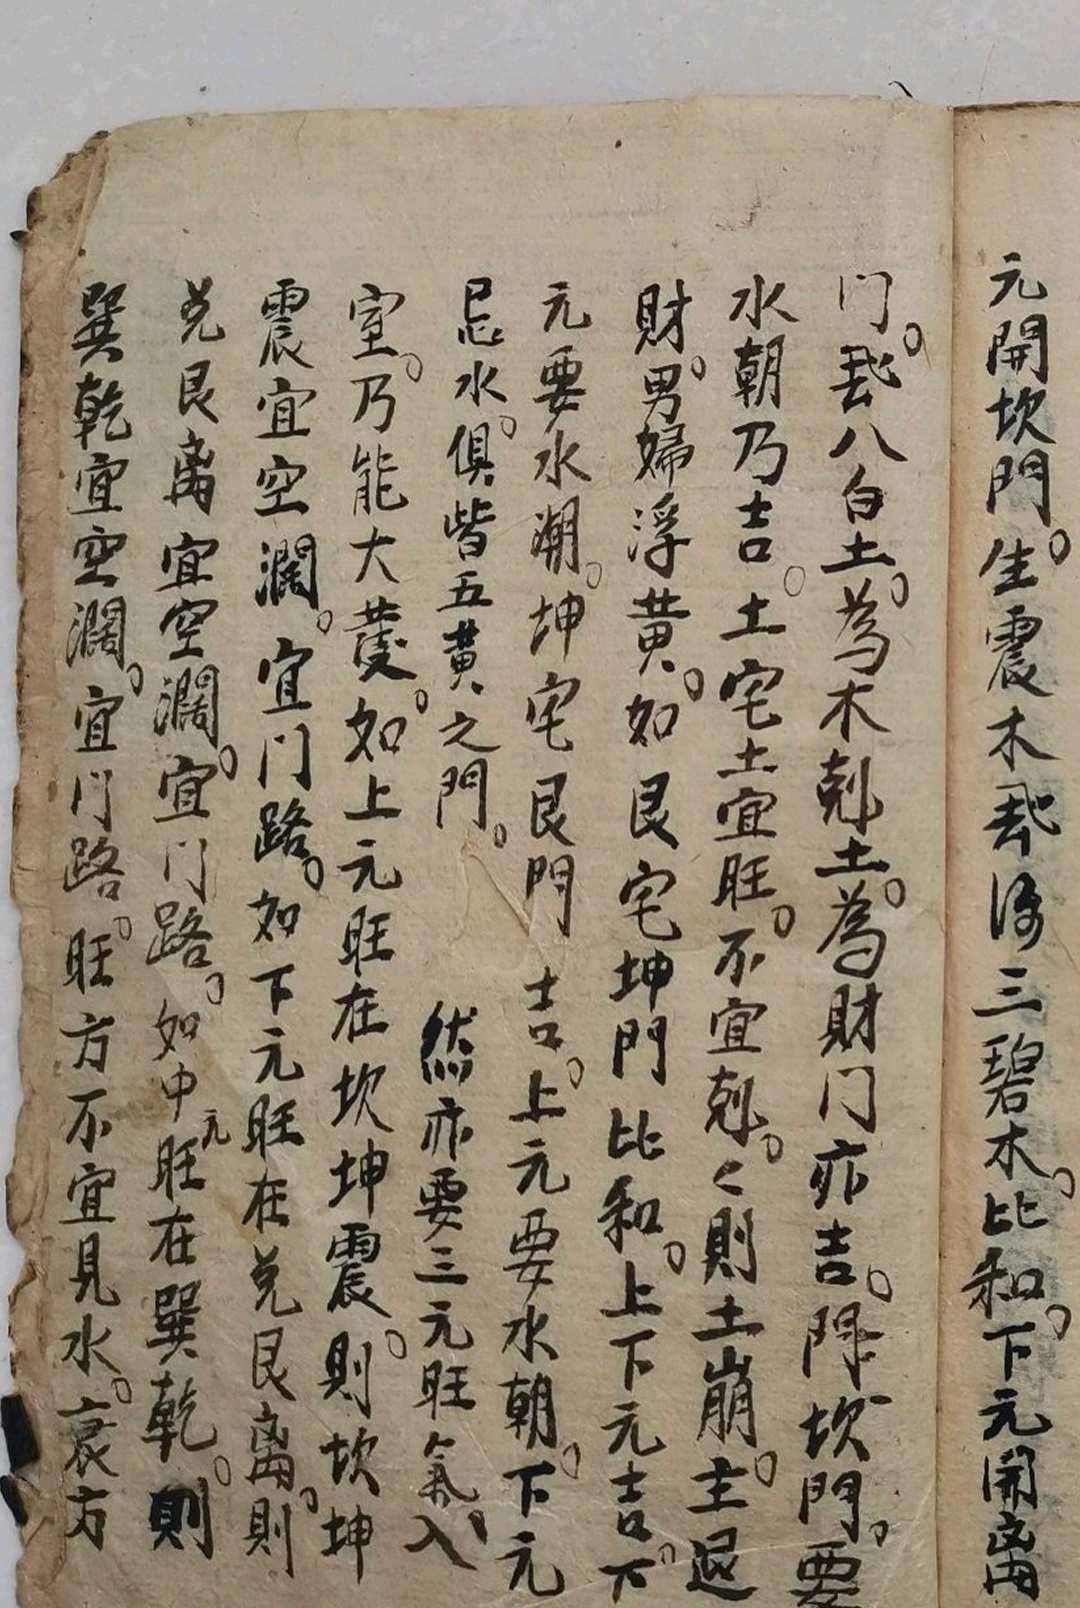 元開坎門。生震木飛得三碧木。比和。下元開离
门。飛八白土。為木剋土。為財门亦吉。開坎門。要
水朝乃吉。土宅土宜旺。不宜剋。〻則土崩。主退
財。男婦浮黃。如艮宅坤門比和。上下元吉。下
元要水潮。坤宅艮門 吉。上元要水朝。下元
忌水。俱皆五黃之門。 然亦要三元旺氣。入
室。乃能大發。如上元旺在坎坤震。則坎坤
震宜空濶。宜门路。如下元旺在兌艮离。則
兌艮离宜空濶。宜门路。如中元旺在巽乾。則
巽乾宜空濶。宜门路。旺方不宜見水。衰方